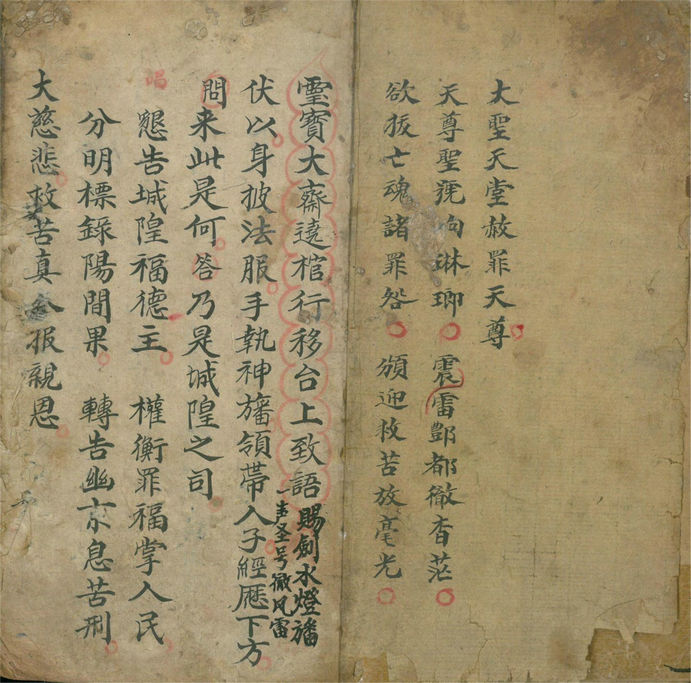 大聖天堂赦罪天尊
天尊聖號响琳瑯 震雷酆都徹杳茫
欲拔亡魂諸罪咎 頒迎救苦放毫光
靈寳大齋遶棺行移台上致語 賜劍水燈旛
聖号徹風雷
伏以身披法服手執神旛領帶人子經歷下方
問来此是何 答乃是城隍之司
唱
懇告城隍福德主 權衡罪福掌人民
分明標錄陽間果 轉告幽京息苦刑
大慈悲救苦真 報親恩